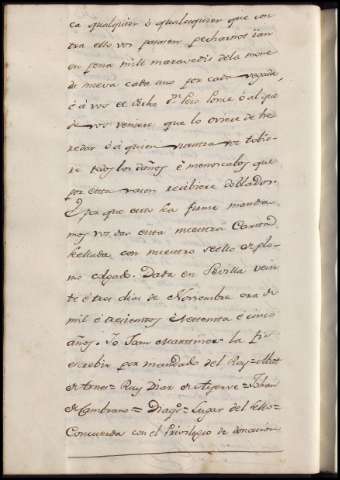 ca qualquier ó qualesquier que con
tra ello vos pasasen pecharnos ian
en pena mill maravedis dela mone
da nueva cada uno por cada vegada,
é á vos el dicho Dn. Pero Ponce ó al que
de vos viniere que lo oviere de he
redar ó á quien vuestra voz tobie
re todos los daños é menoscabos que
por esta razon recibiere doblados.
E pa que esto sea firme manda
mos vos dar esta nuestra Carta
sellada con nuestro seello de plo
mo colgado. Dada en Sevilla vein
te é tres dias de Noviembre era de
mil é trecientos é setenta é cinco
años. Yo Juan Martinez la fiz
escribir por mandado del Rey =
Ruy Diaz =
de Cambrano = Diago = Lugar del Sello =
Concuerda con el Privilegio de donacion